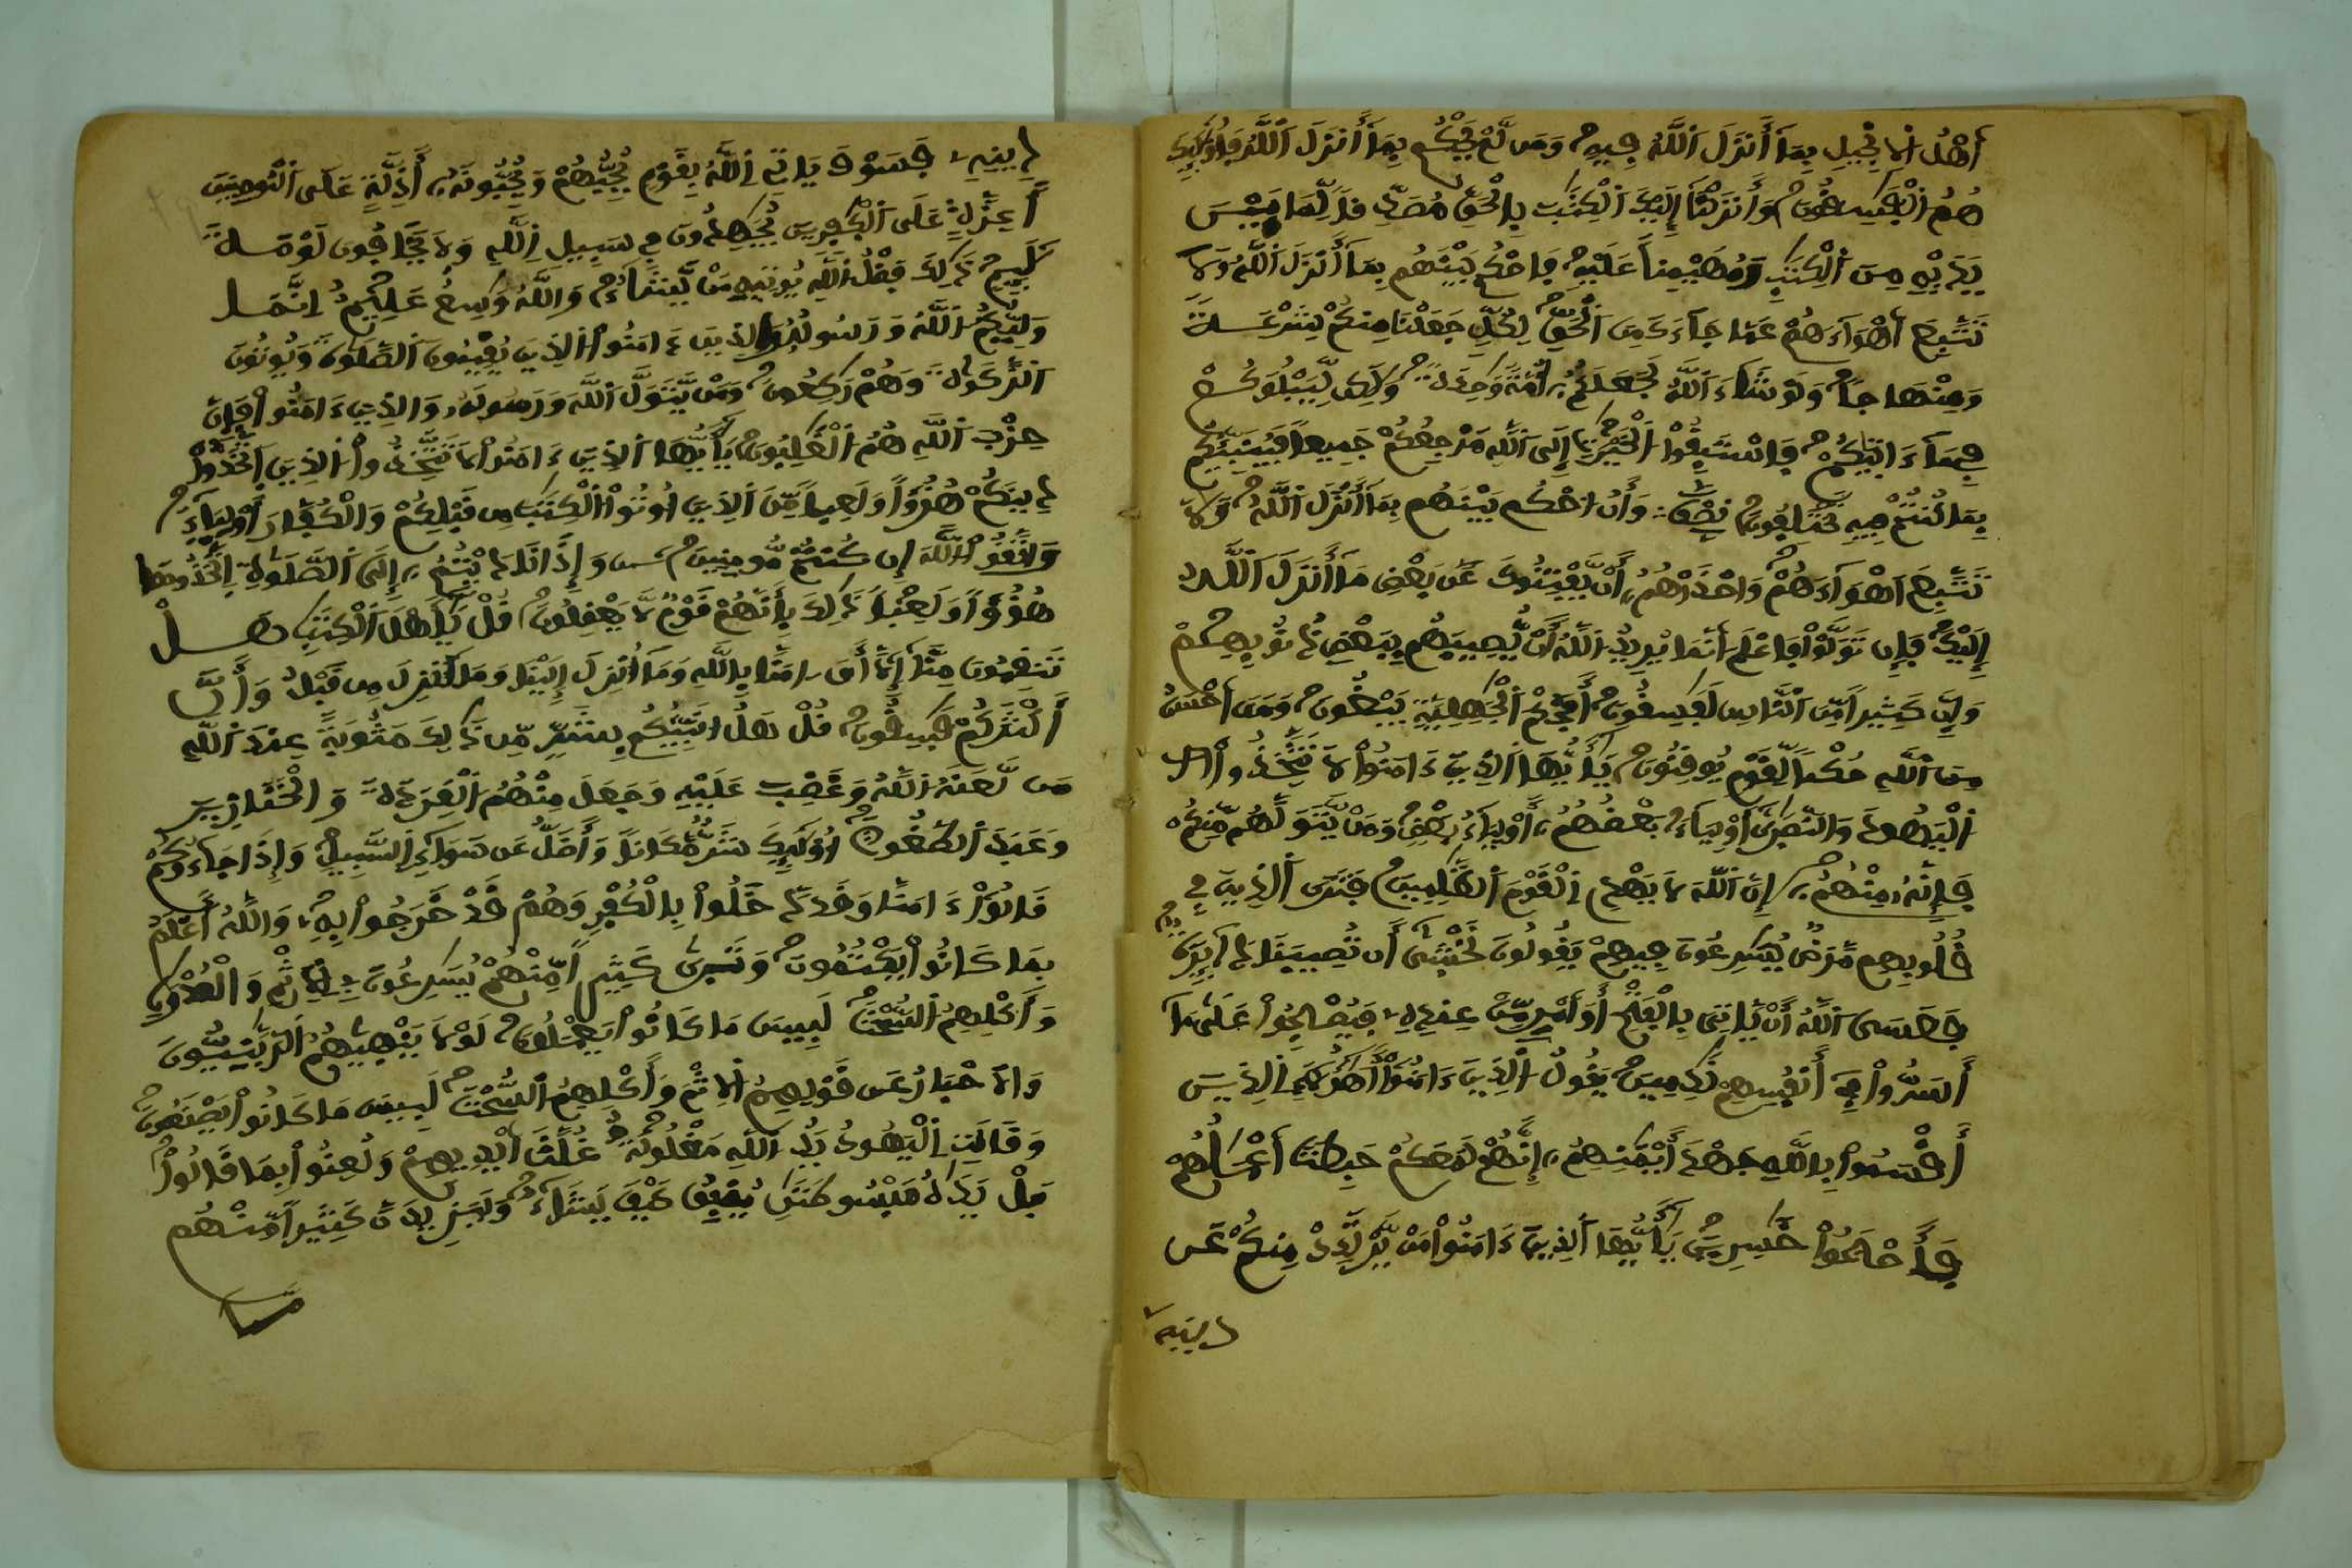 أَهْلُ اَ۬لِانجِيلِ بِمَآ أَنزَلَ اَ۬للَّهُ فِيهِ وَمَن لَّمْ يَحْكُم بِمَآ أَنزَلَ اَ۬للَّهُ فَأُوْلَٰٓئِكَ
هُمُ اُ۬لْفَٰسِقُونَ وَأَنزَلْنَآ إِلَيْكَ اَ۬لْكِتَٰبَ بِالْحَقِّ مُصَدِّقاٗ لِّمَا بَيْنَ
يَدَيْهِ مِنَ اَ۬لْكِتَٰبِ وَمُهَيْمِناً عَلَيْهِ فَاحْكُم بَيْنَهُم بِمَآ أَنزَلَ اَ۬للَّهُ وَلَا
تَتَّبِعَ اَهْوَآءَهُمْ عَمَّا جَآءَكَ مِنَ اَ۬لْحَقِّ لِكُلّٖ جَعَلْنَا مِنكُمْ شِرْعَةٗ
وَمِنْهَاجاٗ وَلَوْ شَآءَ اَ۬للَّهُ لَجَعَلَكُمُۥٓ أُمَّةٗ وَٰحِدَةٗ وَلَٰكِن لِّيَبْلُوَكُمْ
فِيمَآ ءَاتَيٰكُمْ فَاسْتَبِقُواْ اُ۬لْخَيْرَٰتِ إِلَى اَ۬للَّهِ مَرْجِعُكُمْ جَمِيعاٗ فَيُنَبِّئُكُم
بِمَا كُنتُمْ فِيهِ تَخْتَلِفُونَ نصف وَأَنُ اُ۟حْكُم بَيْنَهُم بِمَآ أَنزَلَ اَ۬للَّهُ وَلَا
تَتَّبِعَ اَهْوَآءَهُمْ وَاحْذَرْهُمُۥٓ أَنْ يَّفْتِنُوكَ عَنۢ بَعْضِ مَآ أَنزَلَ اَ۬للَّهُ
إِلَيْكَ فَإِن تَوَلَّوْاْ فَاعْلَمَ اَنَّمَا يُرِيدُ اُ۬للَّهُ أَنْ يُّصِيبَهُم بِبَعْضِ ذُنُوبِهِمْ
وَإِنَّ كَثِيراٗ مِّنَ اَ۬لنَّاسِ لَفَٰسِقُونَ أَفَحُكْمَ اَ۬لْجَٰهِلِيَّةِ يَبْغُونَ وَمَنَ اَحْسَنُ
مِنَ اَ۬للَّهِ حُكْماٗ لِّقَوْمٖ يُوقِنُونَ يَٰٓأَيُّهَا اَ۬لذِينَ ءَامَنُواْ لَا تَتَّخِذُواْ
اُ۬لْيَهُودَ وَالنَّصَٰرَىٰٓ أَوْلِيَآءَ بَعْضُهُمُۥٓ أَوْلِيَآءُ بَعْضٖ وَمَنْ يَّتَوَلَّهُم مِّنكُمْ
فَإِنَّهُۥ مِنْهُمُۥٓ إِنَّ اَ۬للَّهَ لَا يَهْدِے اِ۬لْقَوْمَ اَ۬لظَّٰلِمِينَ فَتَرَى اَ۬لذِينَ فِے
قُلُوبِهِم مَّرَضٞ يُسَٰرِعُونَ فِيهِمْ يَقُولُونَ نَخْش۪يٰٓ أَن تُصِيبَنَا دَآئِرَةٞ
فَعَسَى اَ۬للَّهُ أَنْ يَّاتِيَ بِالْفَتْحِ أَوَ اَمْرٖ مِّنْ عِندِهِۦ فَيُصْبِحُواْ عَلَىٰ مَآ
أَسَرُّواْ فِےٓ أَنفُسِهِمْ نَٰدِمِينَ يَقُولُ اُ۬لذِينَ ءَامَنُوٓاْ أَهَٰٓؤُلَآءِ اِ۬لذِينَ
أَقْسَمُواْ بِاللَّهِ جَهْدَ أَيْمَٰنِهِمُۥٓ إِنَّهُمْ لَمَعَكُمْ حَبِطَتَ اَعْمَٰلُهُمْ
فَأَصْبَحُواْ خَٰسِرِينَ يَٰٓأَيُّهَا اَ۬لذِينَ ءَامَنُواْ مَنْ يَّرْتَدِدْ مِنكُمْ عَن
دينه
دِينِهِۦ فَسَوْفَ يَاتِے اِ۬للَّهُ بِقَوْمٖ يُحِبُّهُمْ وَيُحِبُّونَهُۥٓ أَذِلَّةٍ عَلَى اَ۬لْمُومِنِينَ
أَعِزَّةٍ عَلَى اَ۬لْكٰ۪فِرِينَ يُجَٰهِدُونَ فِے سَبِيلِ اِ۬للَّهِ وَلَا يَخَافُونَ لَوْمَةَ
لَآئِمٖ ذَٰلِكَ فَضْلُ اُ۬للَّهِ يُوتِيهِ مَنْ يَّشَآءُ وَاللَّهُ وَٰسِعٌ عَلِيمٌ اِنَّمَا
وَلِيُّكُمُ اُ۬للَّهُ وَرَسُولُهُۥ وَالذِينَ ءَامَنُواْ اُ۬لذِينَ يُقِيمُونَ اَ۬لصَّلَوٰةَ وَيُوتُونَ
اَ۬لزَّكَوٰةَ وَهُمْ رَٰكِعُونَ وَمَنْ يَّتَوَلَّ اَ۬للَّهَ وَرَسُولَهُۥ وَالذِينَ ءَامَنُواْ فَإِنَّ
حِزْبَ اَ۬للَّهِ هُمُ اُ۬لْغَٰلِبُونَ يَٰٓأَيُّهَا اَ۬لذِينَ ءَامَنُواْ لَا تَتَّخِذُواْ اُ۬لذِينَ اَ۪تَّخَذُواْ
دِينَكُمْ هُزُؤاٗ وَلَعِباٗ مِّنَ اَ۬لذِينَ أُوتُواْ اُ۬لْكِتَٰبَ مِن قَبْلِكُمْ وَالْكُفَّارَ أَوْلِيَآءَ
وَاتَّقُواْ اُ۬للَّهَ إِن كُنتُم مُّومِنِينَ وَإِذَا نَادَيْتُمُۥٓ إِلَى اَ۬لصَّلَوٰةِ اِ۪تَّخَذُوهَا
هُزُؤاٗ وَلَعِباٗ ذَٰلِكَ بِأَنَّهُمْ قَوْمٞ لَّا يَعْقِلُونَ قُلْ يَٰٓأَهْلَ اَ۬لْكِتَٰبِ هَلْ
تَنقِمُونَ مِنَّآ إِلَّآ أَنَ اٰمَنَّا بِاللَّهِ وَمَآ أُنزِلَ إِلَيْنَا وَمَآ أُنزِلَ مِن قَبْلُ وَأَنَّ
أَكْثَرَكُمْ فَٰسِقُونَ قُلْ هَلُ ا۟نَبِّئُكُم بِشَرّٖ مِّن ذَٰلِكَ مَثُوبَةً عِندَ اَ۬للَّهِ
مَن لَّعَنَهُ اُ۬للَّهُ وَغَضِبَ عَلَيْهِ وَجَعَلَ مِنْهُمُ اُ۬لْقِرَدَةَ وَالْخَنَازِيرَ
وَعَبَدَ اَ۬لطَّٰغُوتَ أُوْلَٰٓئِكَ شَرّٞ مَّكَاناٗ وَأَضَلُّ عَن سَوَآءِ اِ۬لسَّبِيلِ وَإِذَا جَآءُوكُمْ
قَالُوٓاْ ءَامَنَّا وَقَد دَّخَلُواْ بِالْكُفْرِ وَهُمْ قَدْ خَرَجُواْ بِهِۦ وَاللَّهُ أَعْلَمُ
بِمَا كَانُواْ يَكْتُمُونَ وَتَر۪يٰ كَثِيراٗ مِّنْهُمْ يُسَٰرِعُونَ فِے اِ۬لِاثْمِ وَالْعُدْوَٰنِ
وَأَكْلِهِمُ اُ۬لسُّحْتَ لَبِيسَ مَا كَانُواْ يَعْمَلُونَ لَوْلَا يَنْه۪يٰهُمُ اُ۬لرَّبَّٰنِيُّونَ
وَالَاحْبَارُ عَن قَوْلِهِمُ اُ۬لِاثْمَ وَأَكْلِهِمُ اُ۬لسُّحْتَ لَبِيسَ مَا كَانُواْ يَصْنَعُونَ
وَقَالَتِ اِ۬لْيَهُودُ يَدُ اُ۬للَّهِ مَغْلُولَةٌ غُلَّتَ اَيْدِيهِمْ وَلُعِنُواْ بِمَا قَالُواْ
بَلْ يَدَٰهُ مَبْسُوطَتَٰنِ يُنفِقُ كَيْفَ يَشَآءُ وَلَيَزِيدَنَّ كَثِيراٗ مِّنْهُم
مَّا